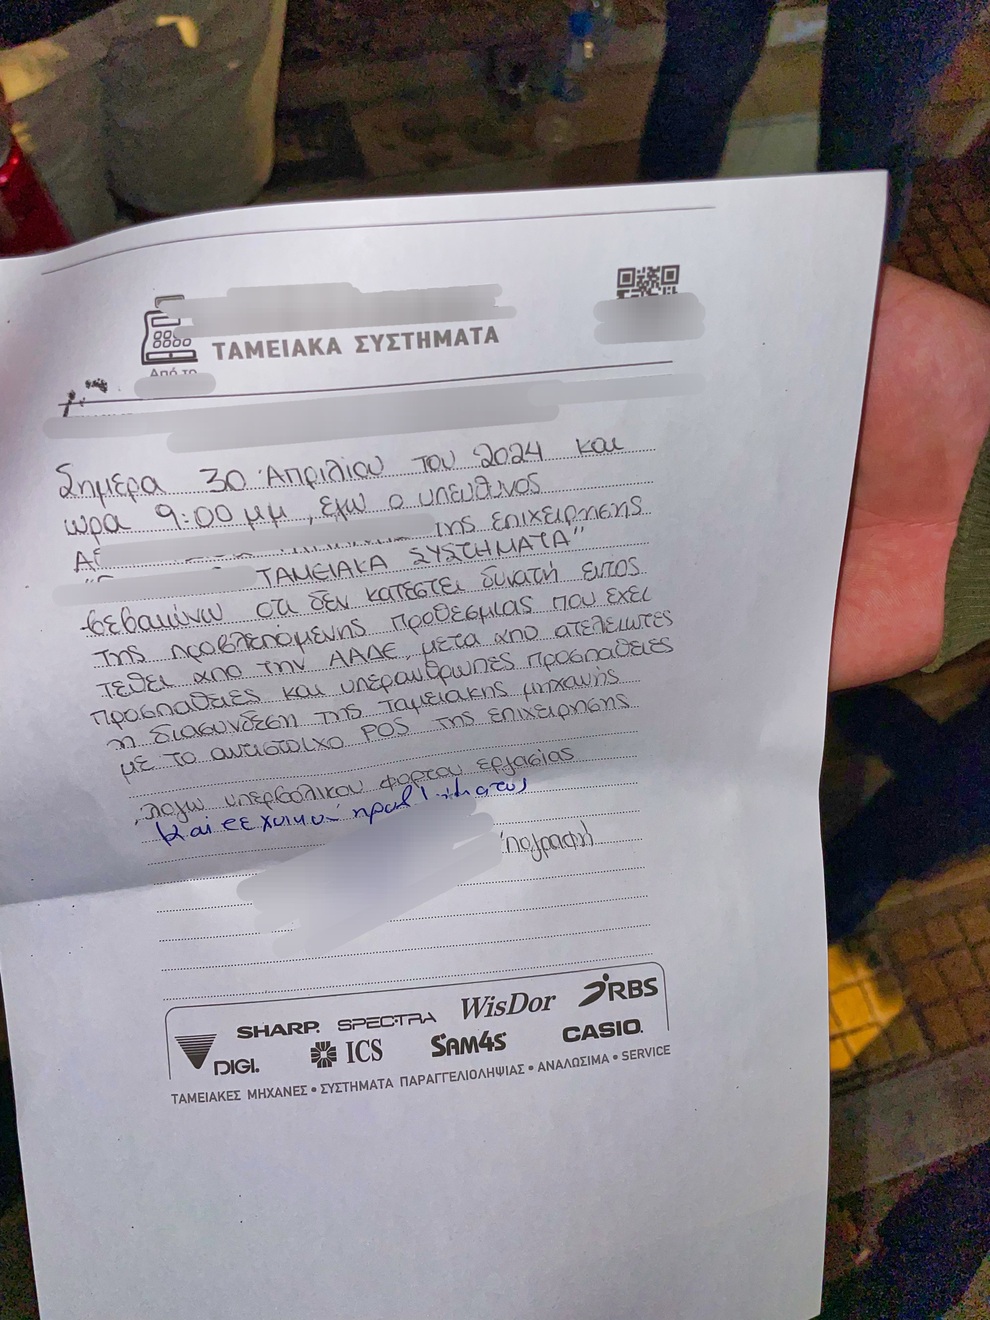 ΤΑΜΕΙΑΚΑ ΣΥΣΤΗΜΑΤΑ
Από το
Σημέρα 30 Απριλίου του 2024 και
ώρα 9:00 μμ, εγω ο υπευθυνος
της επιχειρησης
ΤΑΜΕΙΑΚΑ ΣΥΣΤΗΜΑΤΑ"
βεβαιώνω οτι δεν κατεστει δυνατή εντος
της προβλεπόμενης προθεσμιας που εχει
τεθει απο την ΑΑΔΕ, μετα απο ατελειωτες
προσπαθειες και υπερανθρωπες προσπαθειες
η διασυνδεση της ταμειακης μηχανής
με το αντιστοιχο POS της επιχειρησης
,λογω υπερβολικου φορτου εργασίας
και τεχνικού προβλήματος
SHARP. SPECTRA WisDor RBS
DIGI. ICS SAM4S CASIO.
ΤΑΜΕΙΑΚΕΣ ΜΗΧΑΝΕΣ • ΣΥΣΤΗΜΑΤΑ ΠΑΡΑΓΓΕΛΙΟΛΗΨΙΑΣ • ΑΝΑΛΩΣΙΜΑ • SERVICE